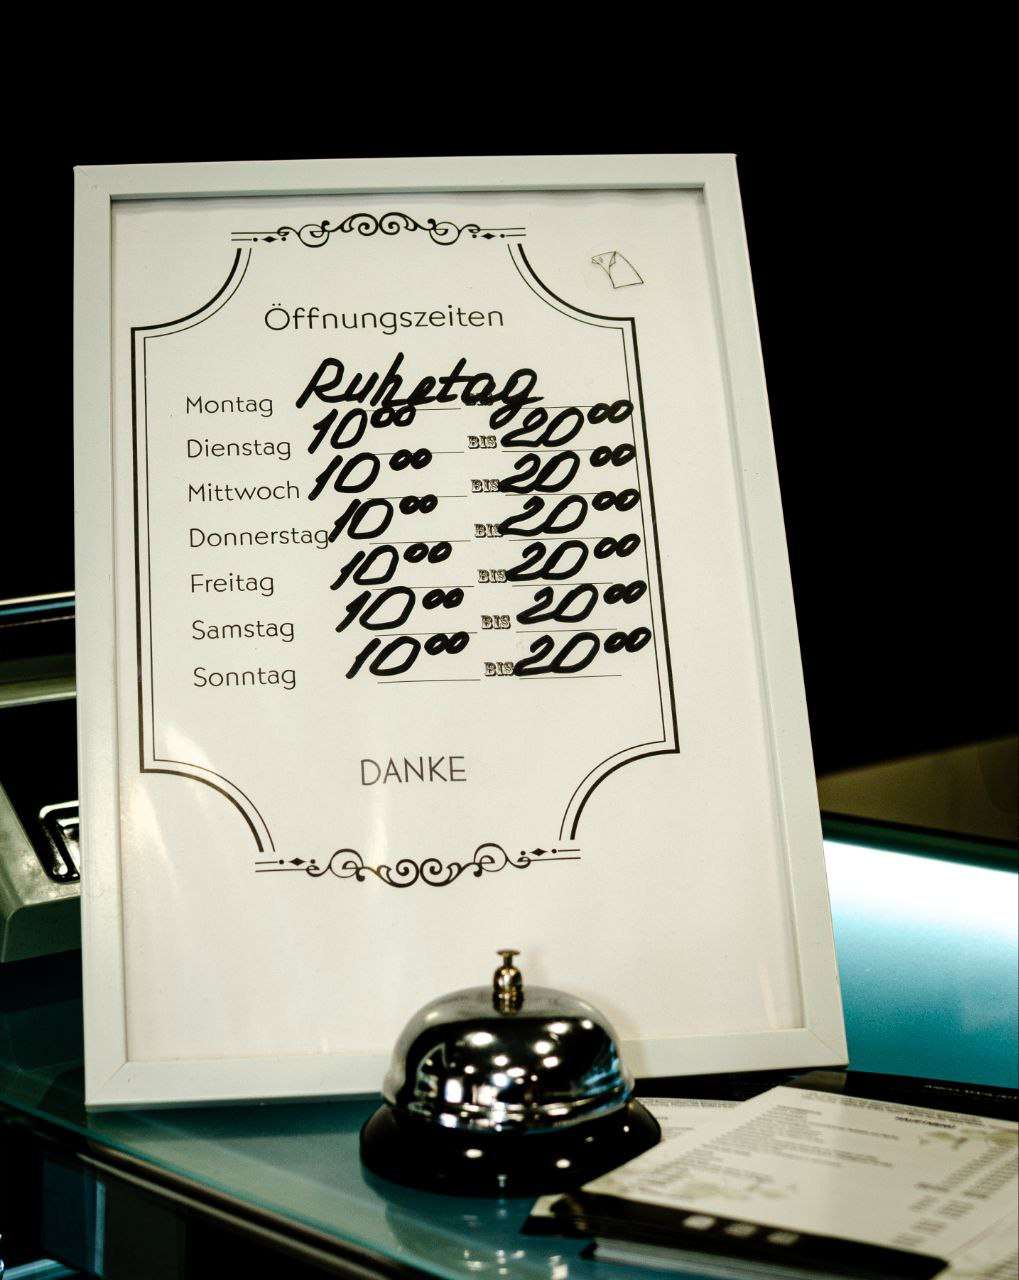 Öffnungszeiten
Montag Ruhetag
Dienstag 10⁰⁰ BIS 20⁰⁰
Mittwoch 10⁰⁰ BIS 20⁰⁰
Donnerstag 10⁰⁰ BIS 20⁰⁰
Freitag 10⁰⁰ BIS 20⁰⁰
Samstag 10⁰⁰ BIS 20⁰⁰
Sonntag 10⁰⁰ BIS 20⁰⁰
DANKE